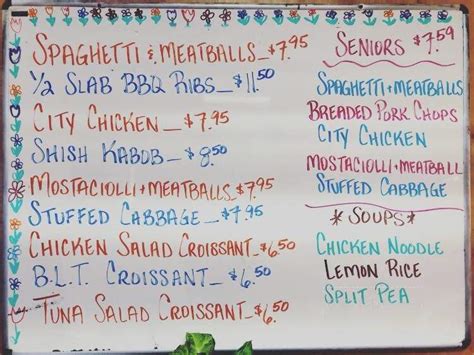 SPAGHETTI & MEATBALLS_$7.95
1/2 SLAB BBQ RIBS_$11.50
CITY CHICKEN_$7.95
SHISH KABOB_$8.50
MOSTACIOLLI+MEATBALLS_$7.95
STUFFED CABBAGE_$7.95
CHICKEN SALAD CROISSANT_$6.50
B.L.T. CROISSANT_$6.50
TUNA SALAD CROISSANT_$6.50
SENIORS $7.59
SPAGHETTI+MEATBALLS
BREADED PORK CHOPS
CITY CHICKEN
MOSTACIOLLI+MEATBALL
STUFFED CABBAGE
*SOUPS*
CHICKEN NOODLE
LEMON RICE
SPLIT PEA